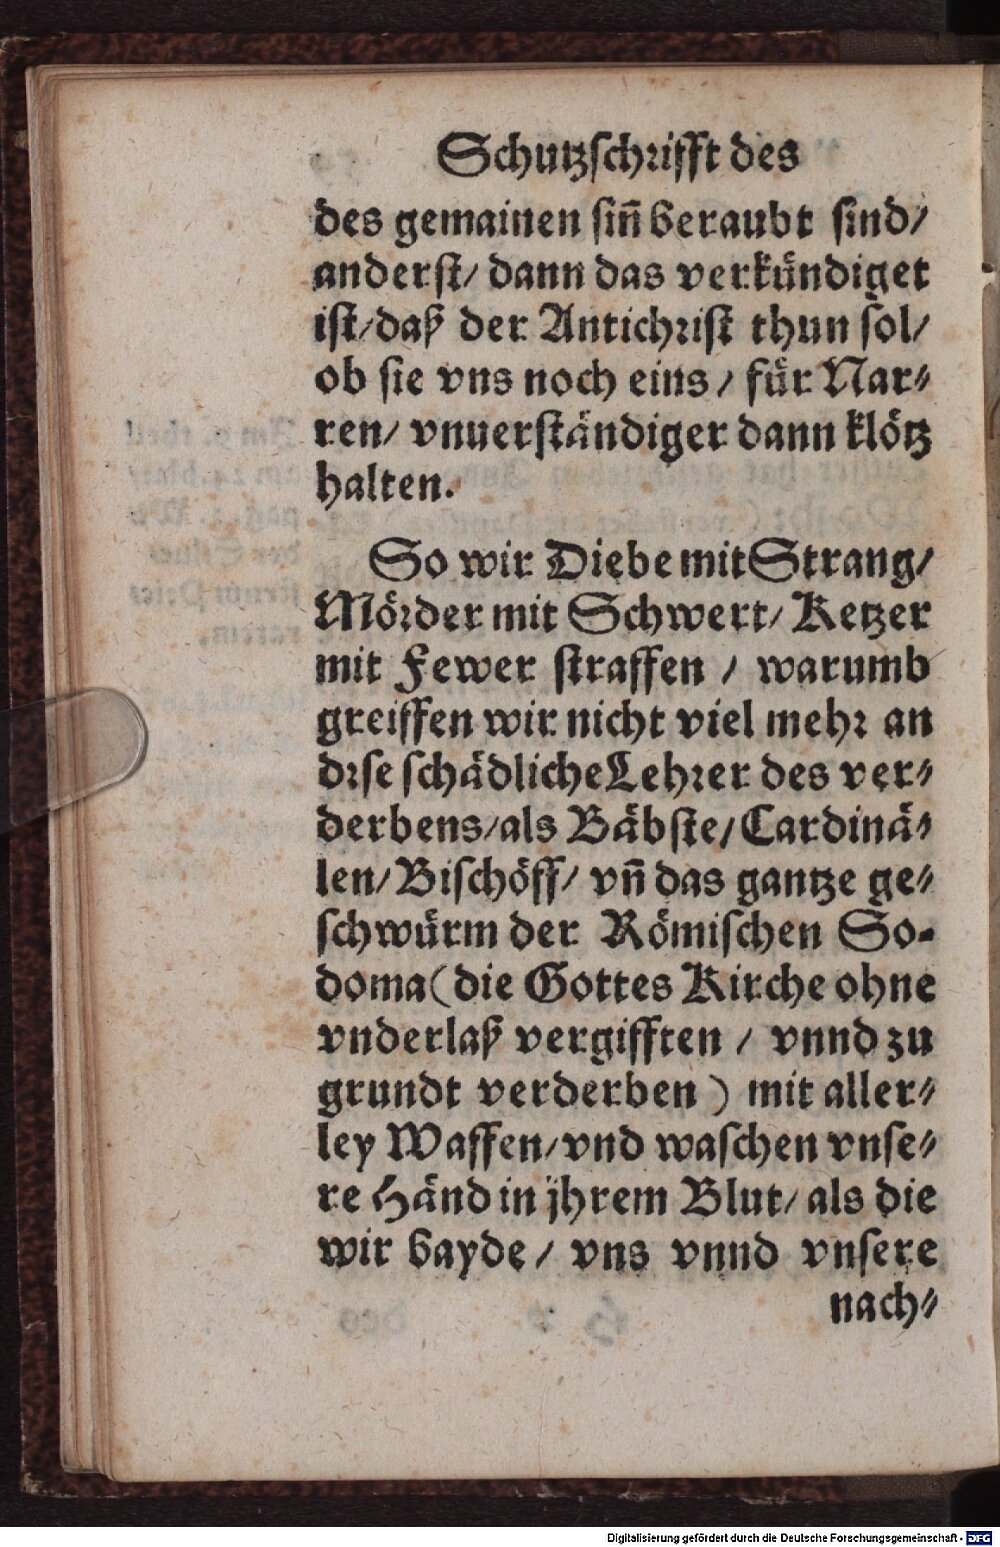 Schutzschrifft des
des gemainen siñ beraubt sind/
anderst/ dann das verkündiget
ist/daß der Antichrist thun sol/
ob sie vns noch eins / für Nar⸗
ren/ vnuerständiger dann klötz
halten.
So wir Diebe mit Strang/
Mörder mit Schwert/ Ketzer
mit Fewer straffen / warumb
greiffen wir nicht viel mehr an
dise schädliche Lehrer des ver⸗
derbens/als Bäbste/ Cardinä⸗
len/ Bischöff/ vñ das gantze ge⸗
schwürm der Römischen So-
doma (die Gottes Kirche ohne
vnderlaß vergifften / vnnd zu
grundt verderben) mit aller⸗
ley Waffen/vnd waschen vnse⸗
re Händ in jhrem Blut/ als die
wir bayde / vns vnnd vnsere
nach⸗
Digitalisierung gefördert durch die Deutsche Forschungsgemeinschaft - DFG